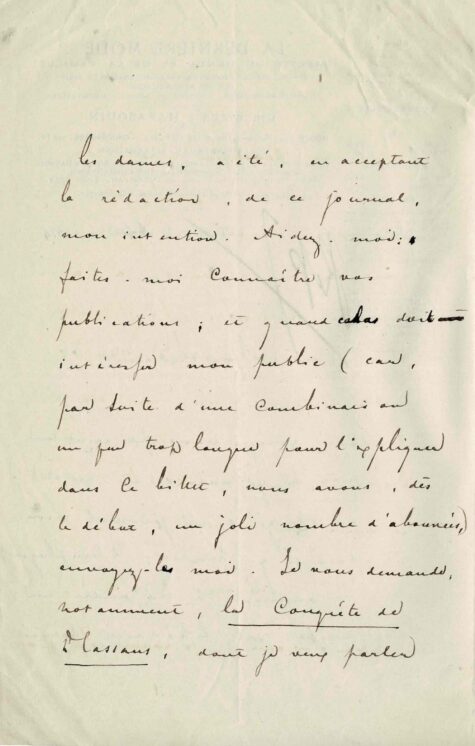 les dames, a été, en acceptant
la rédaction, de ce journal,
mon intention. Aidez-moi :
faites-moi connaître vos
publications ; et quand cela doit
intéresser mon public (car,
par suite d'une combinaison
un peu trop longue pour l'expliquer
dans ce billet, nous avons, dès
le début, un joli nombre d'abonnées,)
envoyez-les moi. Je vous demande,
notamment, la Conquête de
Plassans, dont je veux parler